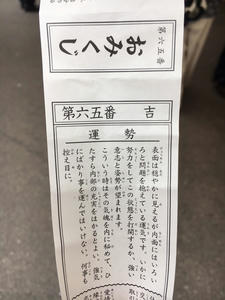 第六五番
おみくじ
第六五番 吉
運勢
表面は穏やかに見えるが内面にはいろい
ろと問題を抱えている運気です。いかに
努力をしてこの状態を打開するか、強い
意志と姿勢が望まれます。
こういう時はその気魂を内に秘めて、ひ
たすら内部の充実をはかるとよい。強気
にばかり事を運んではいけない。何事も
控え目に。